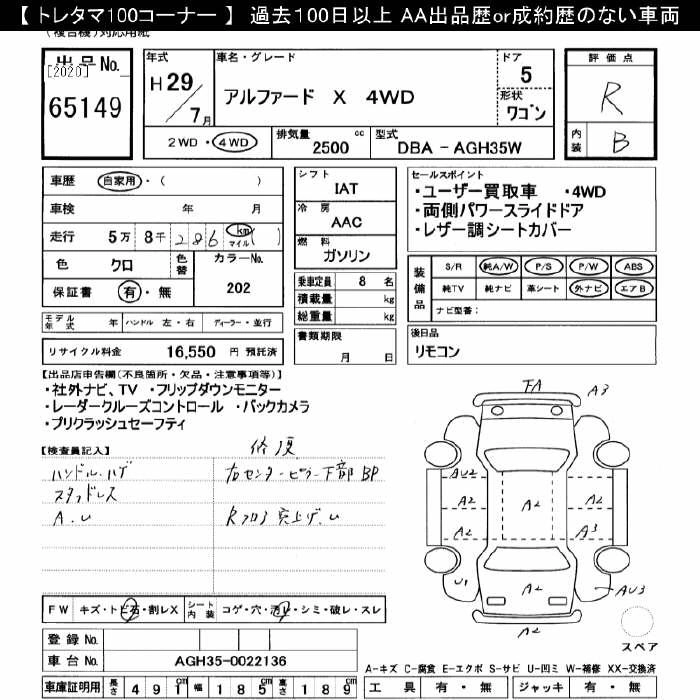 【 トレタマ100コーナー 】 過去100日以上 AA出品歴or成約歴のない車両
(複合機)対応用紙
出品No.
[2020]
65149
年式
H 29/7月
車名・グレード
アルファード X 4WD
ドア
5
形状
ワゴン
評価点
R
内装
B
2WD ・ 4WD
排気量
2500 cc
型式
DBA - AGH35W
車歴 自家用・( )
車検 年 月
走行 5万 8千 286 km マイル ( )
色 クロ
色替
カラーNo.
202
保証書 有・無
シフト
IAT
冷房
AAC
燃料
ガソリン
乗車定員 8 名
積載量 kg
総重量 kg
セールスポイント
・ユーザー買取車 ・4WD
・両側パワースライドドア
・レザー調シートカバー
装備品
S/R 純A/W P/S P/W ABS
純TV 純ナビ 革シート 外ナビ エアB
ナビ型番:
モデル年式 年 ハンドル 左・右 ディーラー・並行
リサイクル料金 16,550 円 預託済
書類期限
月 日
後日品
リモコン
【出品店申告欄(不良箇所・欠品・注意事項等)】
・社外ナビ、TV ・フリップダウンモニター
・レーダークルーズコントロール ・バックカメラ
・プリクラッシュセーフティ
【検査員記入】
修復
ハンドルハゲ
右センターピラー下部 BP
スタッドレス
A.U
Rフロア突上げ.U
FA
A3
AU2
A2
A2
A2
A2
A2
A3
U1
A2
AU3
A2
スペア
FW キズ・トビ石・割レX
シート内装 コゲ・穴・汚レ・シミ・破レ・スレ
登録No.
車台No. AGH35-0022136
車庫証明用 長さ 491cm 幅 185cm 高さ 189cm
A-キズ C-腐食 E-エクボ S-サビ U-凹ミ W-補修 XX-交換済
工具 有・無 ジャッキ 有・無